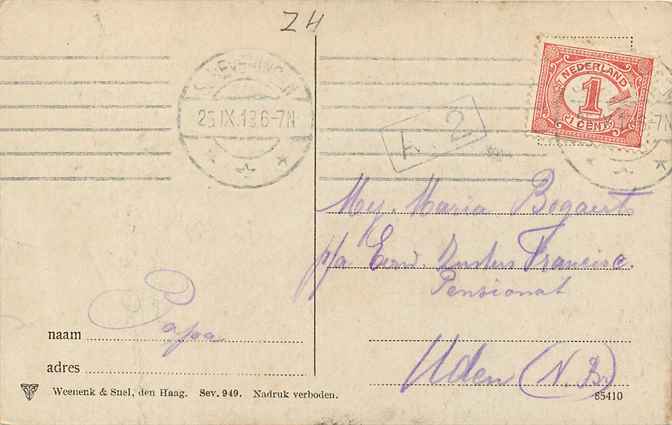 ZH
SCHEVENINGEN
NEDERLAND
1
CENT
25.IX.13 6-7N
2
Mej. Maria Bogaert
p/a Eerw. Zusters Francisc.
Pensionat
Uden (N.B.)
naam Papa
adres
Weenenk & Snel, den Haag. Sev. 949. Nadruk verboden.
85410